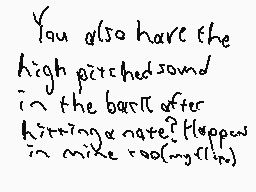 You also have the
high pitched sound
in the back after
hitting a note? Happens
in mine too (my flipo)